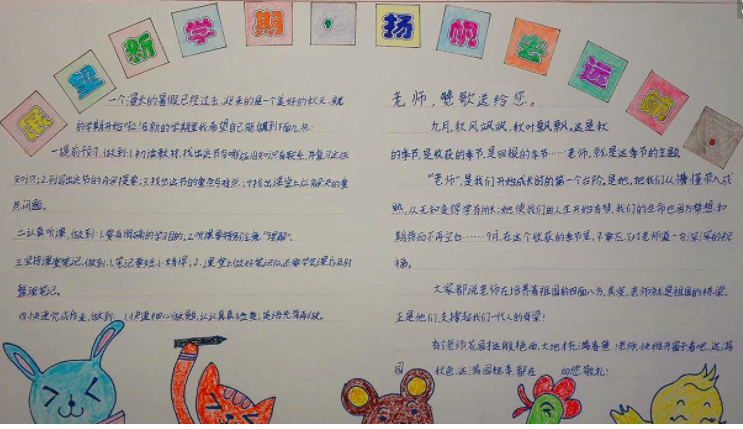 展望新学期·扬帆去远航
一个漫长的暑假已经过去,迎来的是一个美好的秋天,新
的学期开始啦!在新的学期里我希望自己能做到下面几点:
一提前预习,做到:1.初读教材,找出这节与哪些旧知识有联系,并复习这些
知识;2.列写出这节的内容提要;3.找出这节的重点与难点;4.找出课堂上应解决的重
点问题。
二认真听课,做到:1.要有明确的学习目的;2.听课要特别注意"理解"。
三坚持课堂笔记,做到:1.笔记要短小精悍;2.课堂上做好笔记后,还要学会课后及时
整理笔记。
四快速完成作业,做到:1.快速细心做题,认认真真
老师,赞歌送给您。
九月,秋风飒飒,秋叶飘飘。这是秋
的季节,是收获的季节,是回报的季节……老师,就是这季节的主题
"老师",是我们开始成长时的第一个台阶,是她,把我们从懵懂带入成
熟,从无知变得学有所长;她使我们的人生开始有梦,我们的生命也因为梦想和
期待而不再空白……9月,在这个收获的季节里,不要忘了对老师道一台深深的祝
福。
大家都说老师在培养着祖国的四面八方,其实,老师就是祖国的桥梁,
正是他们,支撑起我们一代人的脊梁!
有老师,花园才这般艳丽,大地才充满春意!老师,快推开窗子看吧,这满
园 秋色,这满园桃李都在 向您敬礼!